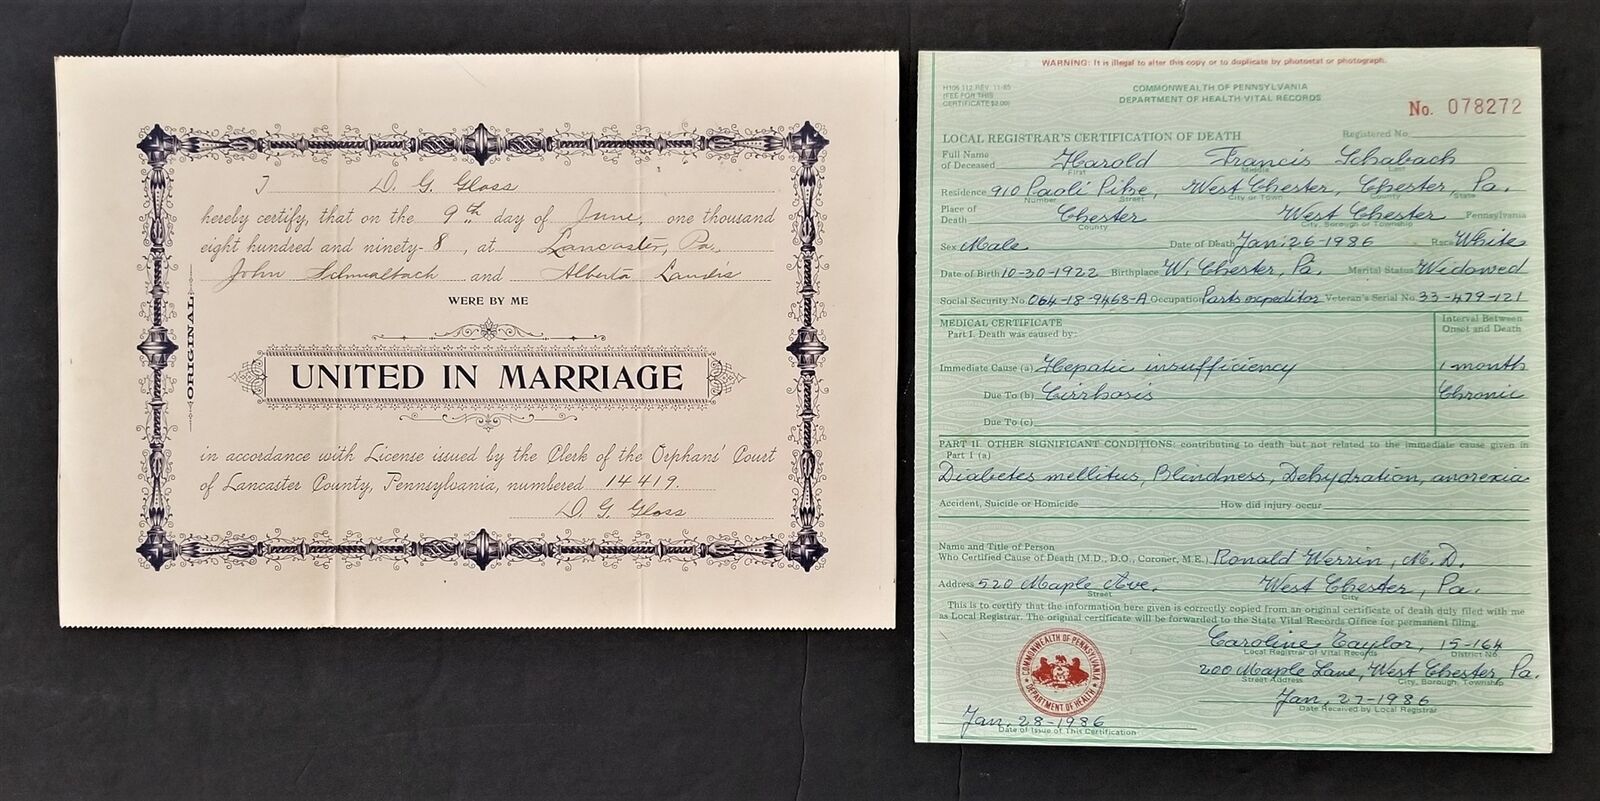 I D. G. Glass
hereby certify, that on the 9th day of June, one thousand
eight hundred and ninety-8, at Lancaster, Pa.
John Schmalbach and Alberta Landis
WERE BY ME
UNITED IN MARRIAGE
in accordance with License issued by the Clerk of the Orphans' Court
of Lancaster County, Pennsylvania, numbered 14419.
D. G. Glass
ORIGINAL
WARNING: It is illegal to alter this copy or to duplicate by photostat or photograph.
H105.112 REV. 11-85
(FEE FOR THIS
CERTIFICATE $2.00)
COMMONWEALTH OF PENNSYLVANIA
DEPARTMENT OF HEALTH-VITAL RECORDS
No. 078272
LOCAL REGISTRAR'S CERTIFICATION OF DEATH
Registered No.
Full Name of Deceased Harold Francis Schabach
First Middle Last
Residence 910 Paoli Pike, West Chester, Chester, Pa.
Number Street City or Town County State
Place of Death Chester West Chester Pennsylvania
County City, Borough or Township
Sex Male Date of Death Jan. 26-1986 Race White
Date of Birth 10-30-1922 Birthplace W. Chester, Pa. Marital Status Widowed
Social Security No. 064-18-9463-A Occupation Parts expeditor Veteran's Serial No. 33-479-121
MEDICAL CERTIFICATE
Part I. Death was caused by:
Interval Between
Onset and Death
Immediate Cause (a) Hepatic insufficiency 1 month
Due To (b) Cirrhosis Chronic
Due To (c)
PART II. OTHER SIGNIFICANT CONDITIONS: contributing to death but not related to the immediate cause given in
Part I (a)
Diabetes mellitus, Blindness, Dehydration, anorexia
Accident, Suicide or Homicide How did injury occur
Name and Title of Person
Who Certified Cause of Death (M.D., D.O., Coroner, M.E.) Ronald Werrin, M.D.
Address 520 Maple Ave. West Chester, Pa.
Street City
This is to certify that the information here given is correctly copied from an original certificate of death duly filed with me
as Local Registrar. The original certificate will be forwarded to the State Vital Records Office for permanent filing.
Caroline Taylor, 15-164
Local Registrar of Vital Records District No.
200 Maple Lane, West Chester Pa.
Street Address City, Borough, Township
Jan. 27-1986
Date Received by Local Registrar
COMMONWEALTH OF PENNSYLVANIA
DEPARTMENT OF HEALTH
Jan. 28-1986
Date of Issue of This Certification